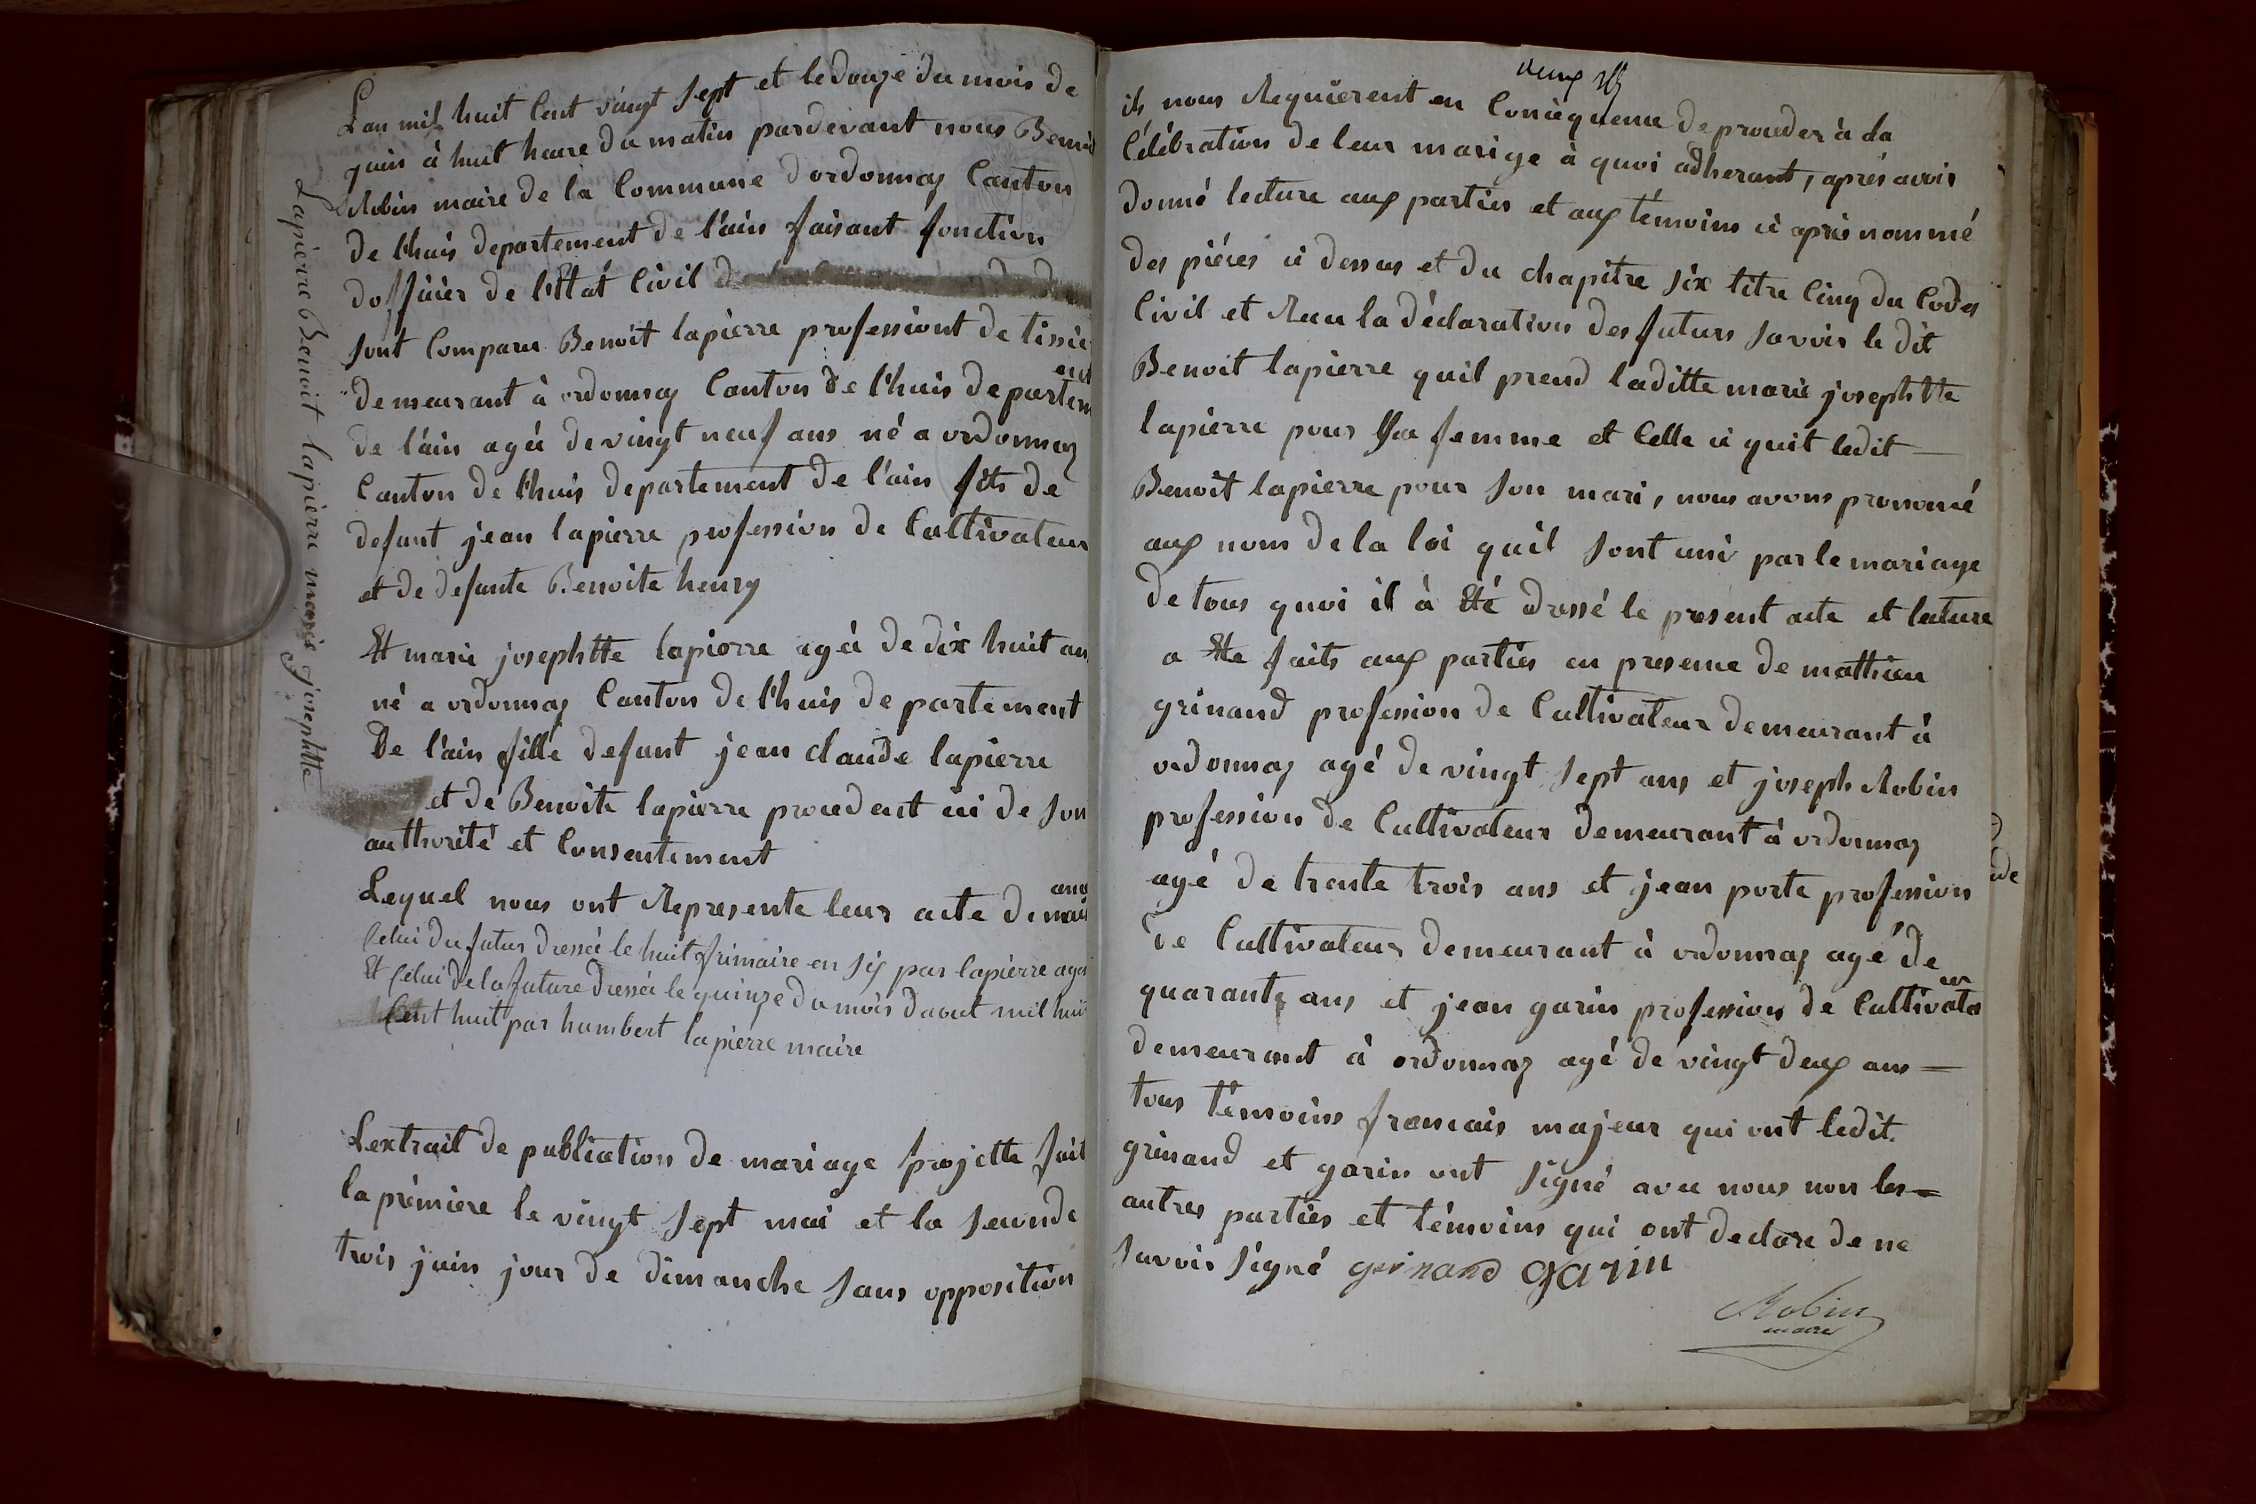 Lapierre Benoit lapierre marie josephtte
Lan mil huit Cent vingt Sept et le douze du mois de
juin à huit heure du matin pardevant nous Benoit
Robin maire de la Commune d'ordonnaz Canton
de lhuis departement de l'ain faisant fonction
dofficier de l'Etat Civil
sont Comparu Benoit lapierre professiont de tissier
demeurant à ordonnaz Canton de lhuis departement
de l'ain agéé de vingt neuf ans né a ordonnaz
Canton de lhuis departement de l'ain fils de
defunt jean lapierre profession de Cultivateur
et de defunte Benoite henry
Et marie josephtte lapierre agéé de dix huit ans
né a ordonnaz Canton de lhuis departement
De l'ain fille defunt jean claude lapierre
et de Benoite lapierre procedent ici de son
authorité et Consentement
Lequel nous ont Represente leur acte de
Celui du futur dressée le huit frimaire en six par lapierre
Et Celui de la future dressée le quinze du mois daout mil huit
Cent huit par humbert lapierre maire
Lextrait de publication de mariage projette fait
la première le vingt sept mai et la seconde
trois juin jour de dimanche sans opposition
ils nous Requierent en Conséquence de proceder à la
Célébration de leur marige à quoi adherant, après avoir
donné lecture aux parties et aux témoins ci après nommé
des piéces ci dessus et du chapitre six titre Cinq du Codes
Civil et Recu la déclaration des futurs savoir le dit
Benoit lapierre quil prend laditte marie josephtte
lapierre pour Sa femme et Celle ci quit ledit —
Benoit lapierre pour son mari, nous avons prononcé
aux nom de la loi quil sont uni par le mariage
de tous quoi il à Eté dressé le present acte et lecture
a Ete faits aux parties en presence de mathieu
grinand profession de Cultivateur demeurant à
ordonnaz agé de vingt sept ans et joseph Robin
profession de Cultivateur demeurant à ordonnaz
agé de trente trois ans et jean porte profession
de Cultivateur demeurant à ordonnaz agé de
quarante ans et jean garin profession de Cultivateur
demeurant à ordonnaz agé de vingt deux ans —
tous témoins francais majeur qui ont ledit
grinand et garin ont signé avec nous non les
autres parties et témoins qui ont declare de ne
savoir signé grinand garin
Robin
maire